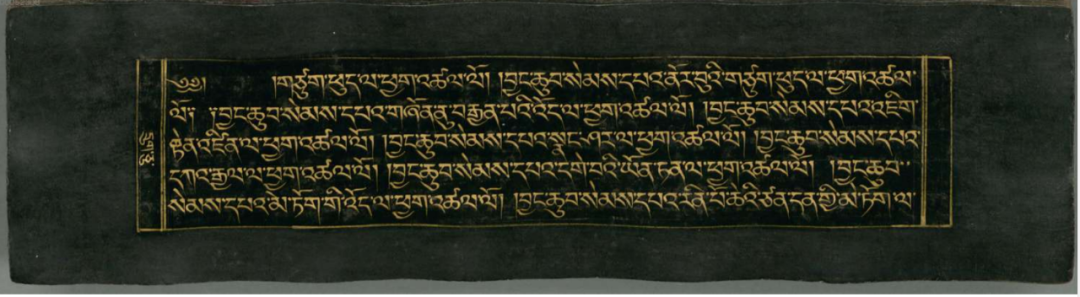 ༄༅། །གཙུག་ཕུད་ལ་ཕྱག་འཚལ་ལོ། །བྱང་ཆུབ་སེམས་དཔའ་ནོར་བུའི་གཙུག་ཕུད་ལ་ཕྱག་འཚལ་
ལོ། །བྱང་ཆུབ་སེམས་དཔའ་གཞོནནུ་བརྒྱན་པའི་འོད་ལ་ཕྱག་འཚལ་ལོ། །བྱང་ཆུབ་སེམས་དཔའ་འཇིག་
རྟེན་འཛིན་ལ་ཕྱག་འཚལ་ལོ། །བྱང་ཆུབ་སེམས་དཔའ་སྣང་ལ་ཕྱག་འཚལ་ལོ། །བྱང་ཆུབ་སེམས་དཔའ་
དཀའ་རྒྱལ་ལ་ཕྱག་འཚལ་ལོ། །བྱང་ཆུབ་སེམས་དཔའ་དགེ་བའི་ཡོན་ཏན་ལ་ཕྱག་འཚལ་ལོ། །བྱང་ཆུབ་
སེམས་དཔའ་མེ་ཏོག་གི་འོད་ལ་ཕྱག་འཚལ་ལོ། །བྱང་ཆུབ་སེམས་དཔའ་རིན་པོ་ཆེའི་ཙནདན་གྱི་མེ་ཏོག་ལ་